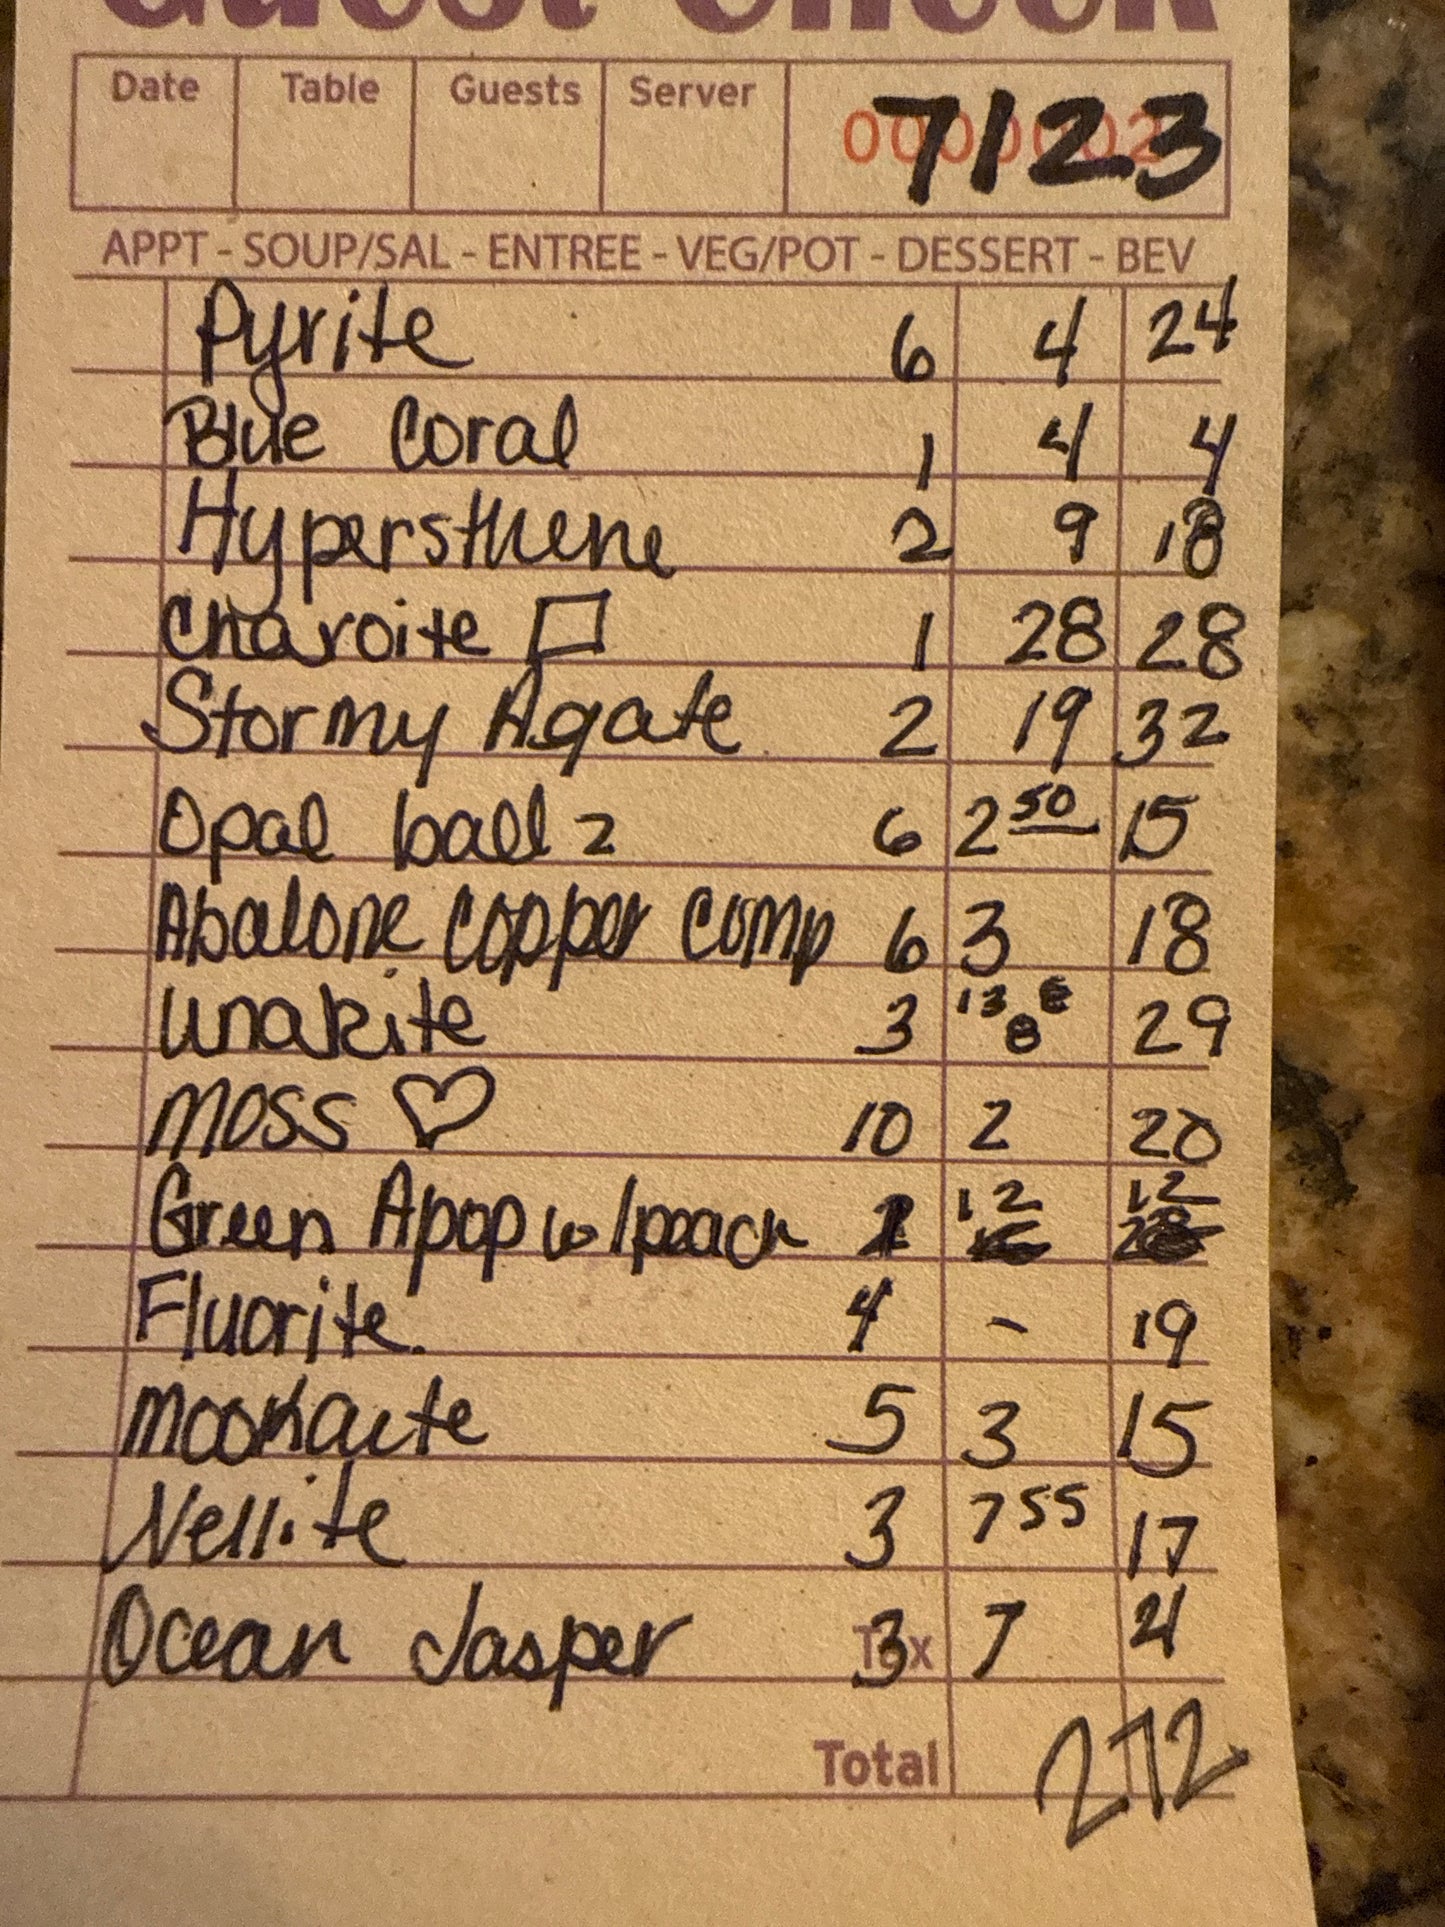 Guest Check
Date Table Guests Server 0000002 7123
APPT - SOUP/SAL - ENTREE - VEG/POT - DESSERT - BEV
Pyrite 6 4 24
Blue Coral 1 4 4
Hypersthene 2 9 18
Charoite 1 28 28
Stormy Agate 2 19 32
Opal ball 2 6 2 50 15
Abalone copper comp 6 3 18
Unakite 3 13 8 8 29
Moss ♡ 10 2 20
Green Apop w/peach 1 12 12
Fluorite. 4 - 19
Mookaite 5 3 15
Nellite 3 7 55 17
Ocean Jasper Tax 3 7 21
Total 272